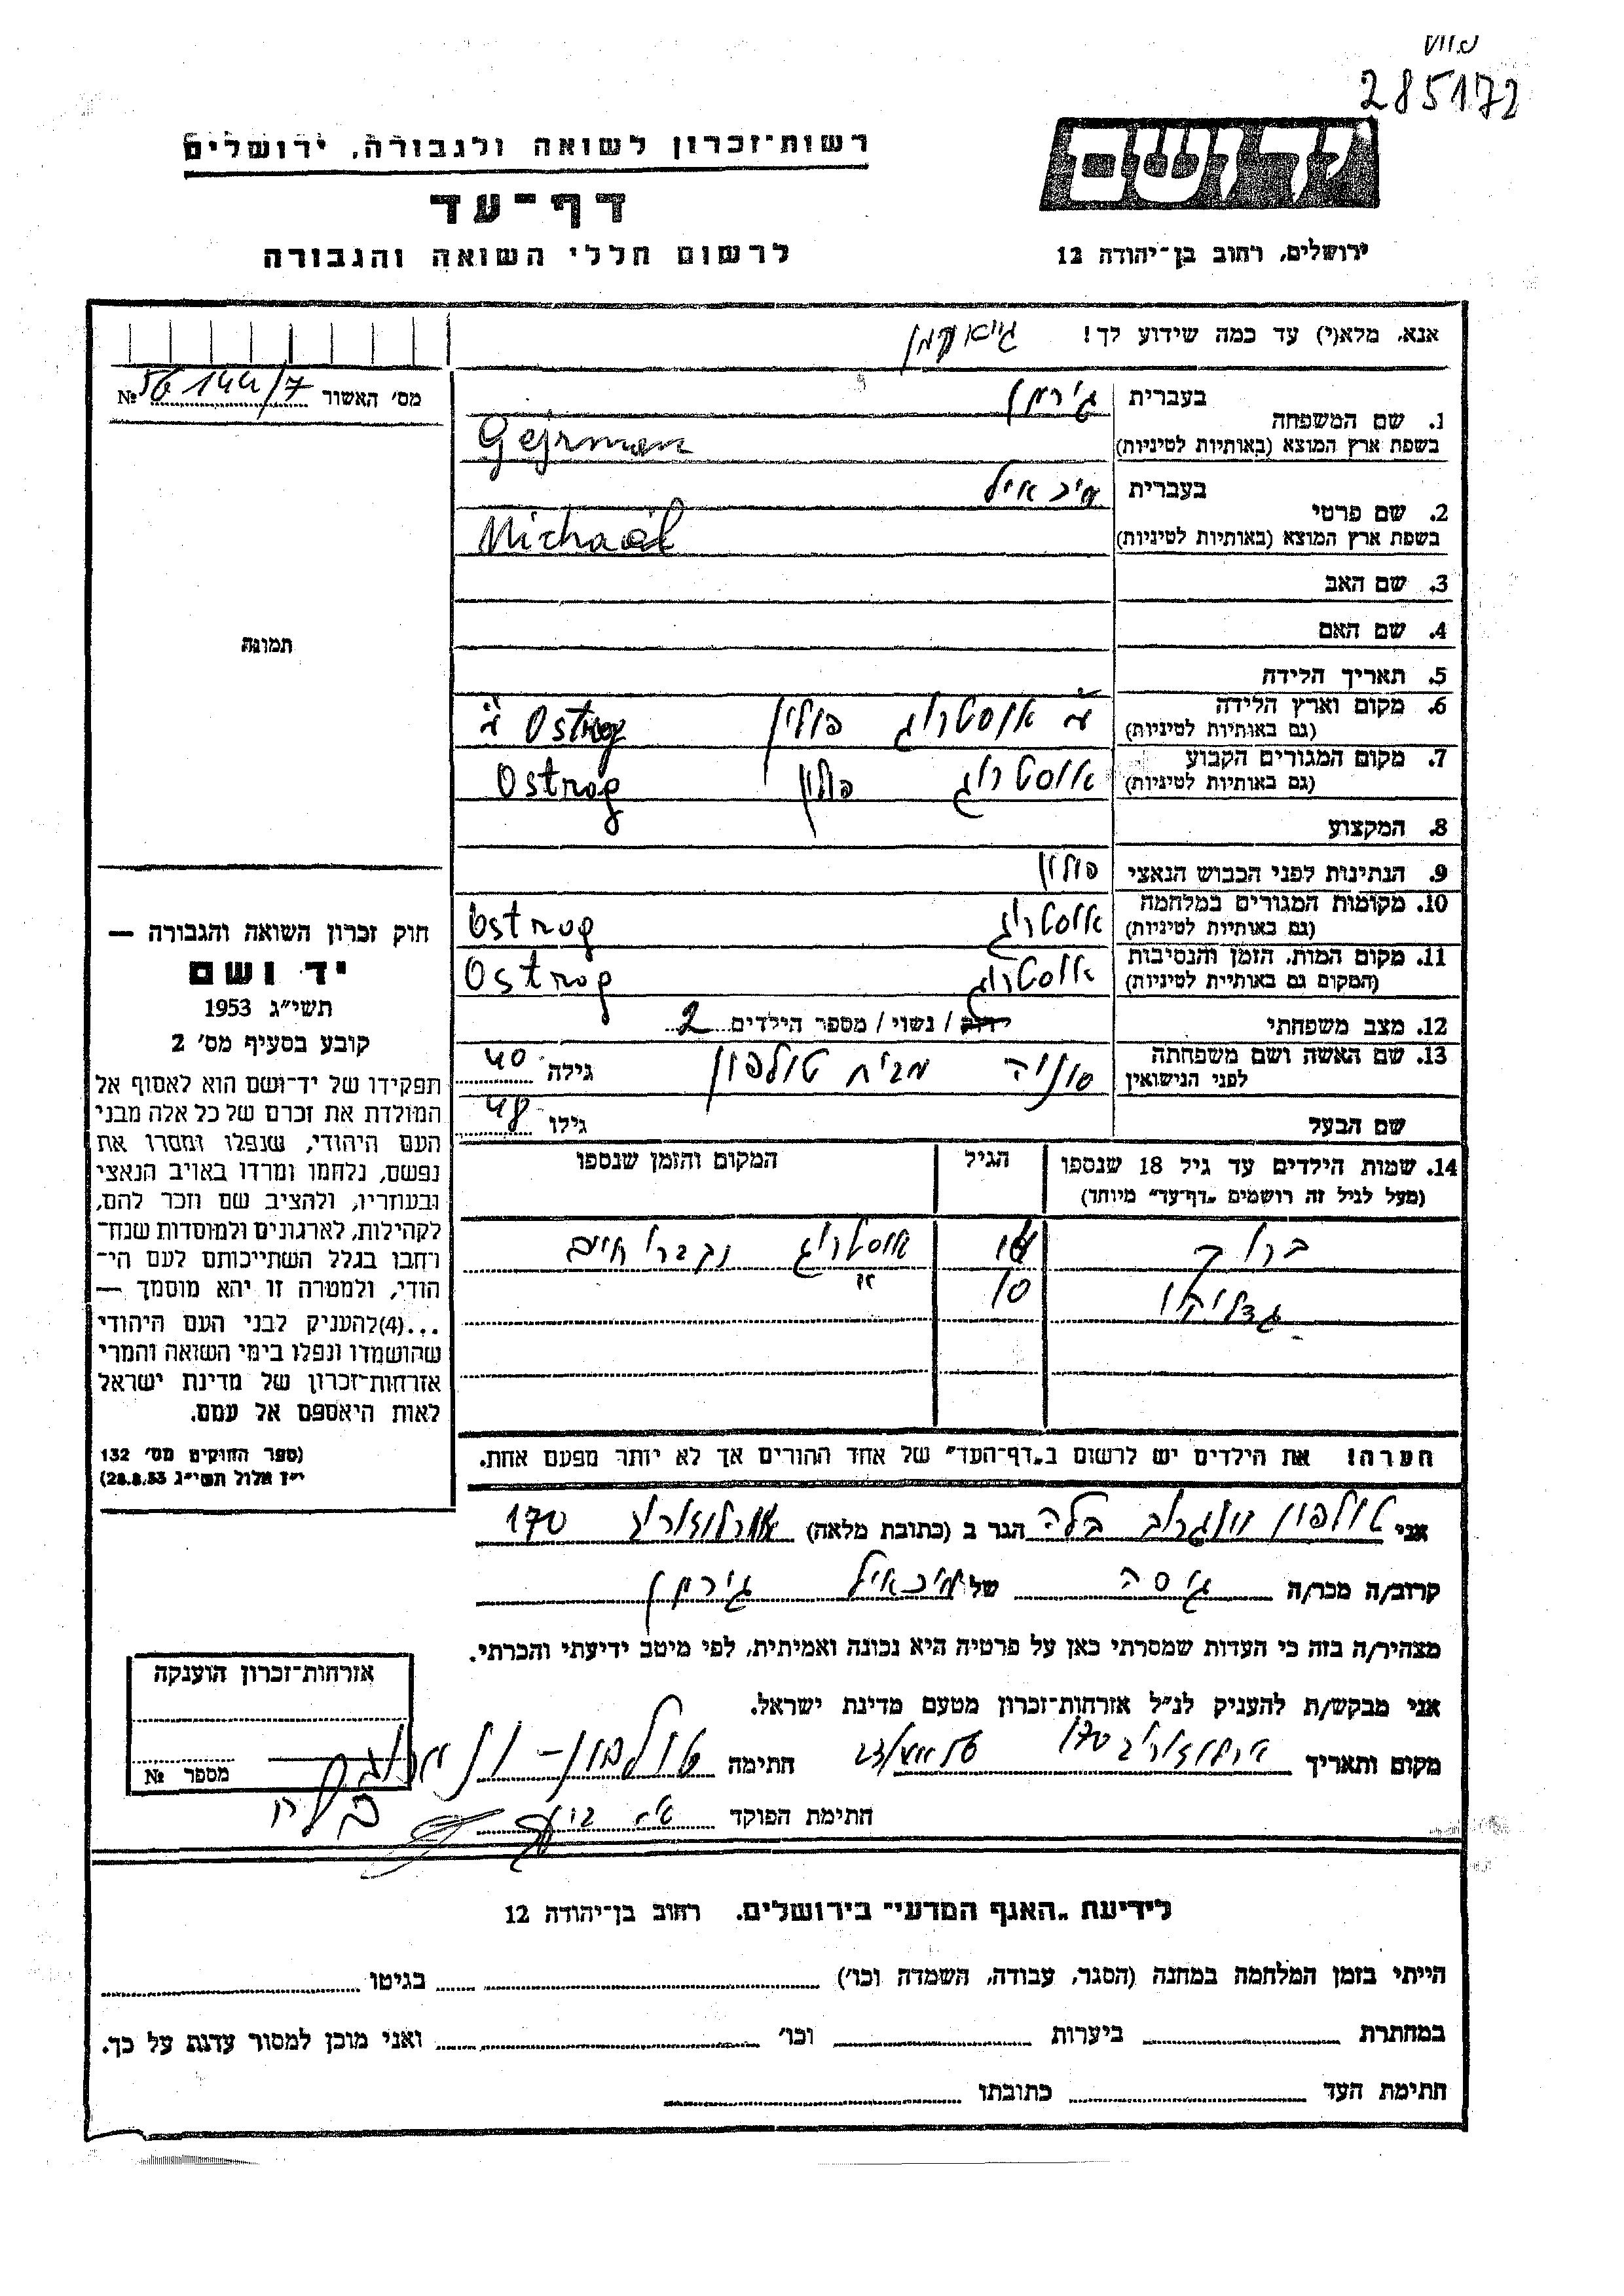 285172
רשות־זכרון לשואה ולגבורה, ירושלים
יד ושם
דף־עד
לרשום חללי השואה והגבורה
ירושלים, רחוב בן־יהודה 12
אנא, מלא(י) עד כמה שידוע לך!
מס׳ האשור №
1. שם המשפחה
בעברית גירמן
בשפת ארץ המוצא (באותיות לטיניות) Gejrman
2. שם פרטי
בעברית מיכאיל
בשפת ארץ המוצא (באותיות לטיניות) Michaél
3. שם האב
4. שם האם
5. תאריך הלידה
6. מקום וארץ הלידה אוסטרוג פולין Ostrog
(גם באותיות לטיניות)
7. מקום המגורים הקבוע אוסטרוג פולין Ostrog
(גם באותיות לטיניות)
8. המקצוע
9. הנתינות לפני הכבוש הנאצי פולין
10. מקומות המגורים במלחמה אוסטרוג Ostrog
(גם באותיות לטיניות)
11. מקום המות, הזמן והנסיבות אוסטרוג Ostrog
(המקום גם באותיות לטיניות)
12. מצב משפחתי רווק / נשוי / מספר הילדים 2
13. שם האשה ושם משפחתה סוניה מבית טולפון גילה 40
לפני הנישואין
שם הבעל גילו 48
14. שמות הילדים עד גיל 18 שנספו הגיל המקום והזמן שנספו
(מעל לגיל זה רושמים „דף־עד״ מיוחד)
ברוך אוסטרוג נקברו חיים
10 "
הערה! את הילדים יש לרשום ב„דף־העד״ של אחד ההורים אך לא יותר מפעם אחת.
תמונה
חוק זכרון השואה והגבורה —
יד ושם
תשי״ג 1953
קובע בסעיף מס׳ 2
תפקידו של יד־ושם הוא לאסוף אל
המולדת את זכרם של כל אלה מבני
העם היהודי, שנפלו ומסרו את
נפשם, נלחמו ומרדו באויב הנאצי
ובעוזריו, ולהציב שם וזכר להם,
לקהילות, לארגונים ולמוסדות שנח־
רחבו בגלל השתייכותם לעם הי־
הודי, ולמטרה זו יהא מוסמך —
...(4) להעניק לבני העם היהודי
שהושמדו ונפלו בימי השואה והמרי
אזרחות־זכרון של מדינת ישראל
לאות היאספם אל עמם.
(ספר החוקים מס׳ 132
י״ז אלול תשי״ג 28.8.53)
אני טולפון בלה הגר ב (כתובת מלאה) ארלוזורוב 170
קרוב/ה מכר/ה גיסה של מיכאיל גירמן
מצהיר/ה בזה כי העדות שמסרתי כאן על פרטיה היא נכונה ואמיתית, לפי מיטב ידיעתי והכרתי.
אני מבקש/ת להעניק לנ״ל אזרחות־זכרון מטעם מדינת ישראל.
מקום ותאריך ארלוזורוב 170 חתימה
חתימת הפוקד
אזרחות־זכרון הוענקה
מספר №
לידיעת „האגף המדעי״ בירושלים, רחוב בן־יהודה 12
הייתי בזמן המלחמה במחנה (הסגר, עבודה, השמדה וכו׳) בגיטו
במחתרת ביערות וכו׳ ואני מוכן למסור עדות על כך.
חתימת העד כתובתו